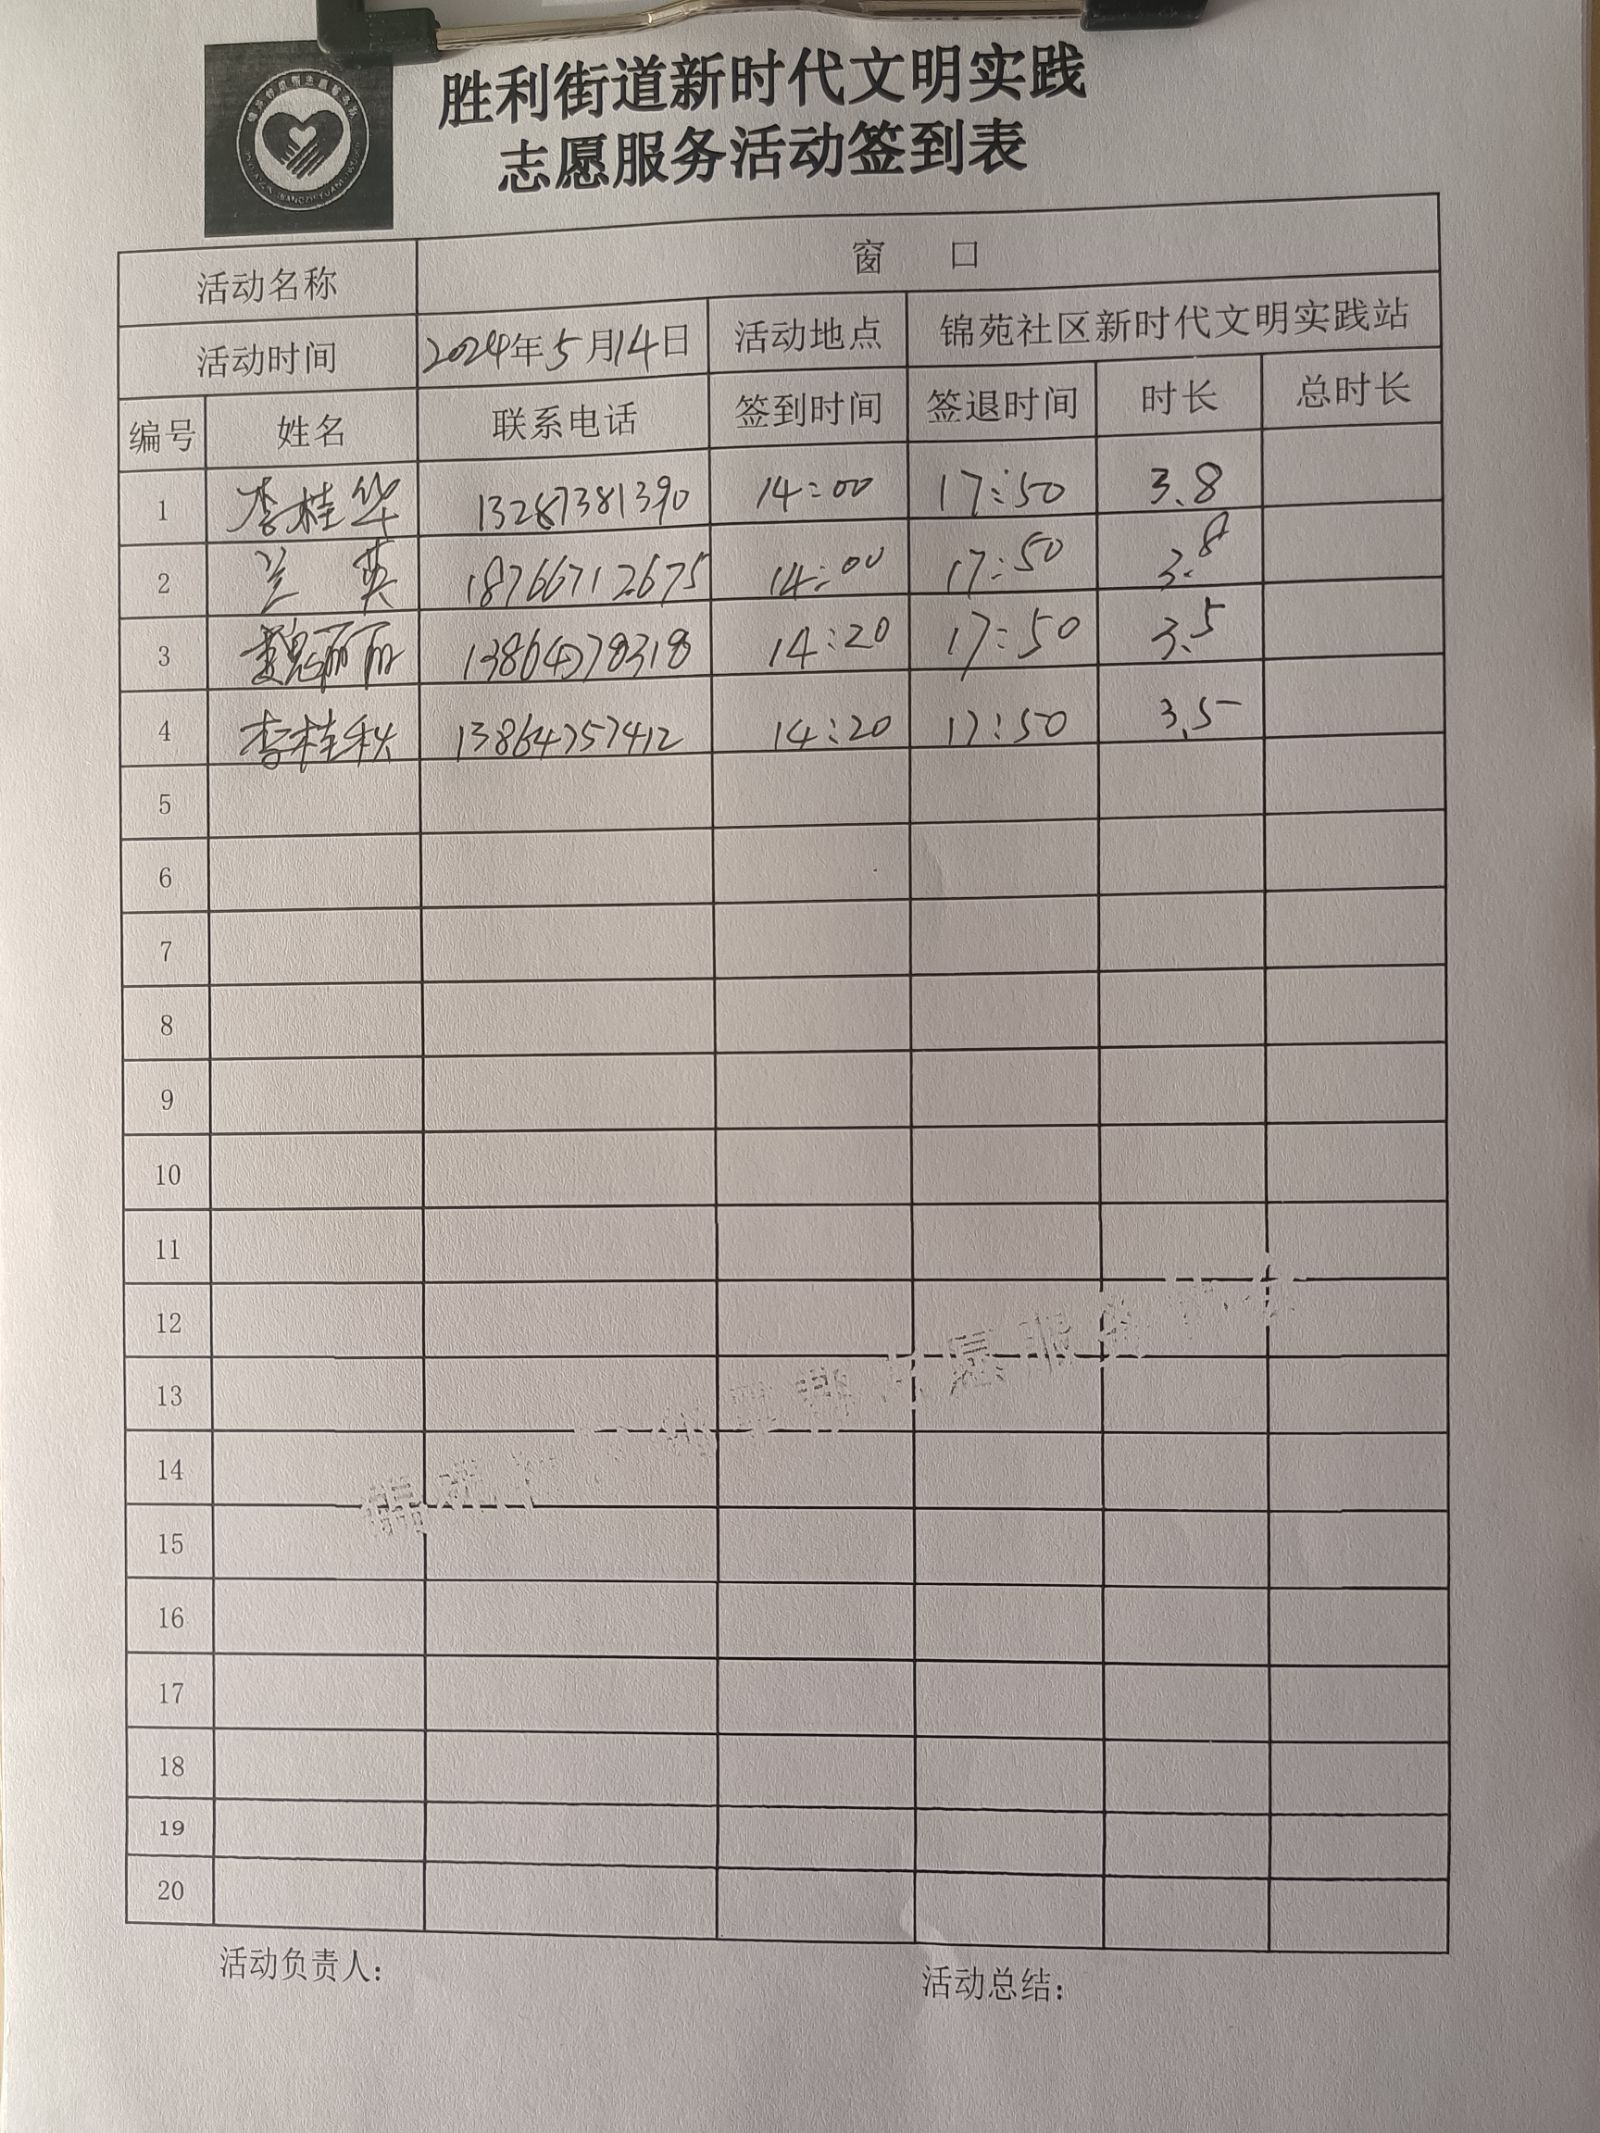 胜利街道新时代文明实践
志愿服务活动签到表
活动名称 窗 口
活动时间 2024年5月14日 活动地点 锦苑社区新时代文明实践站
编号 姓名 联系电话 签到时间 签退时间 时长 总时长
1 李桂华 13287381390 14:00 17:50 3.8
2 兰 英 18766712675 14:00 17:50 3.8
3 魏丽丽 13864778318 14:20 17:50 3.5
4 李桂秋 13864757412 14:20 17:50 3.5
5
6
7
8
9
10
11
12
13
14
15
16
17
18
19
20
活动负责人: 活动总结: